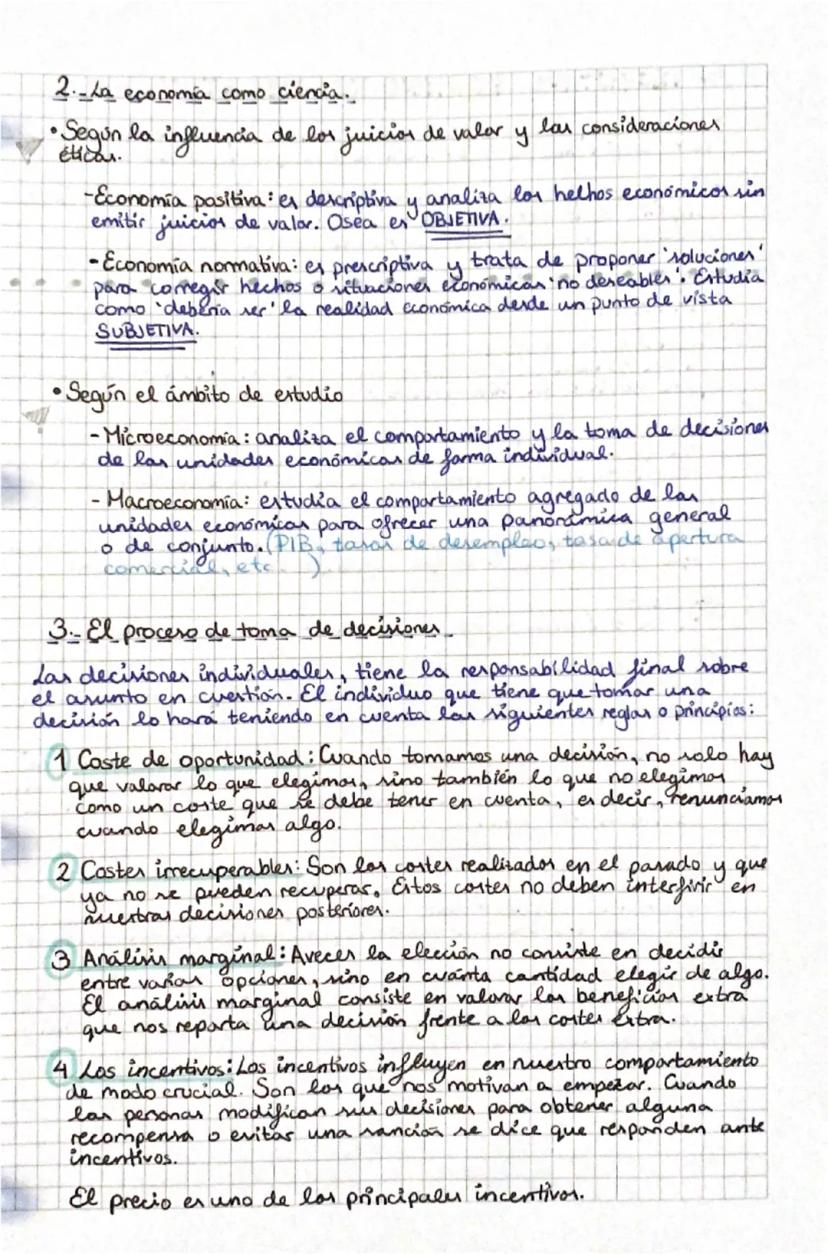 2.- La economía como ciencia.
• Según la influencia de los juicios de valor y las consideraciones
éticas.
- Economía positiva: es descriptiva y analiza los helhos económicos sin
emitir juicios de valor. Osea es OBJETIVA.
- Economía normativa: es prescriptiva y trata de proponer 'soluciones'
para corregir hechos o situaciones económicas 'no deseables'. Estudia
como 'debería ser' la realidad económica desde un punto de vista
SUBJETIVA.
• Según el ámbito de estudio
- Microeconomía: analiza el comportamiento y la toma de decisiones
de las unidades económicas de forma individual.
- Macroeconomía: estudia el comportamiento agregado de las
unidades económicas para ofrecer una panorámica general
o de conjunto. (PIB, tasas de desempleo, tasa de apertura
comercial, etc... )
3.- El proceso de toma de decisiones.
Las decisiones individuales, tiene la responsabilidad final sobre
el asunto en cuestión. El individuo que tiene que tomar una
decisión lo hará teniendo en cuenta las siguientes reglas o principios:
1 Coste de oportunidad: Cuando tomamos una decisión, no solo hay
que valorar lo que elegimos, sino también lo que no elegimos
como un coste que se debe tener en cuenta, es decir, renunciamos
cuando elegimos algo.
2 Costes irrecuperables: Son los costes realizados en el pasado y que
ya no se pueden recuperar. Estos costes no deben interfirir en
nuestras decisiones posteriores.
3 Análisis marginal: Aveces la elección no consiste en decidir
entre varias opciones, sino en cuánta cantidad elegir de algo.
El análisis marginal consiste en valorar los beneficios extra
que nos reporta una decisión frente a los costes extra.
4 Los incentivos: Los incentivos influyen en nuestro comportamiento
de modo crucial. Son los que nos motivan a empezar. Cuando
las personas modifican sus decisiones para obtener alguna
recompensa o evitar una sanción se dice que responden ante
incentivos.
El precio es uno de los principales incentivos.